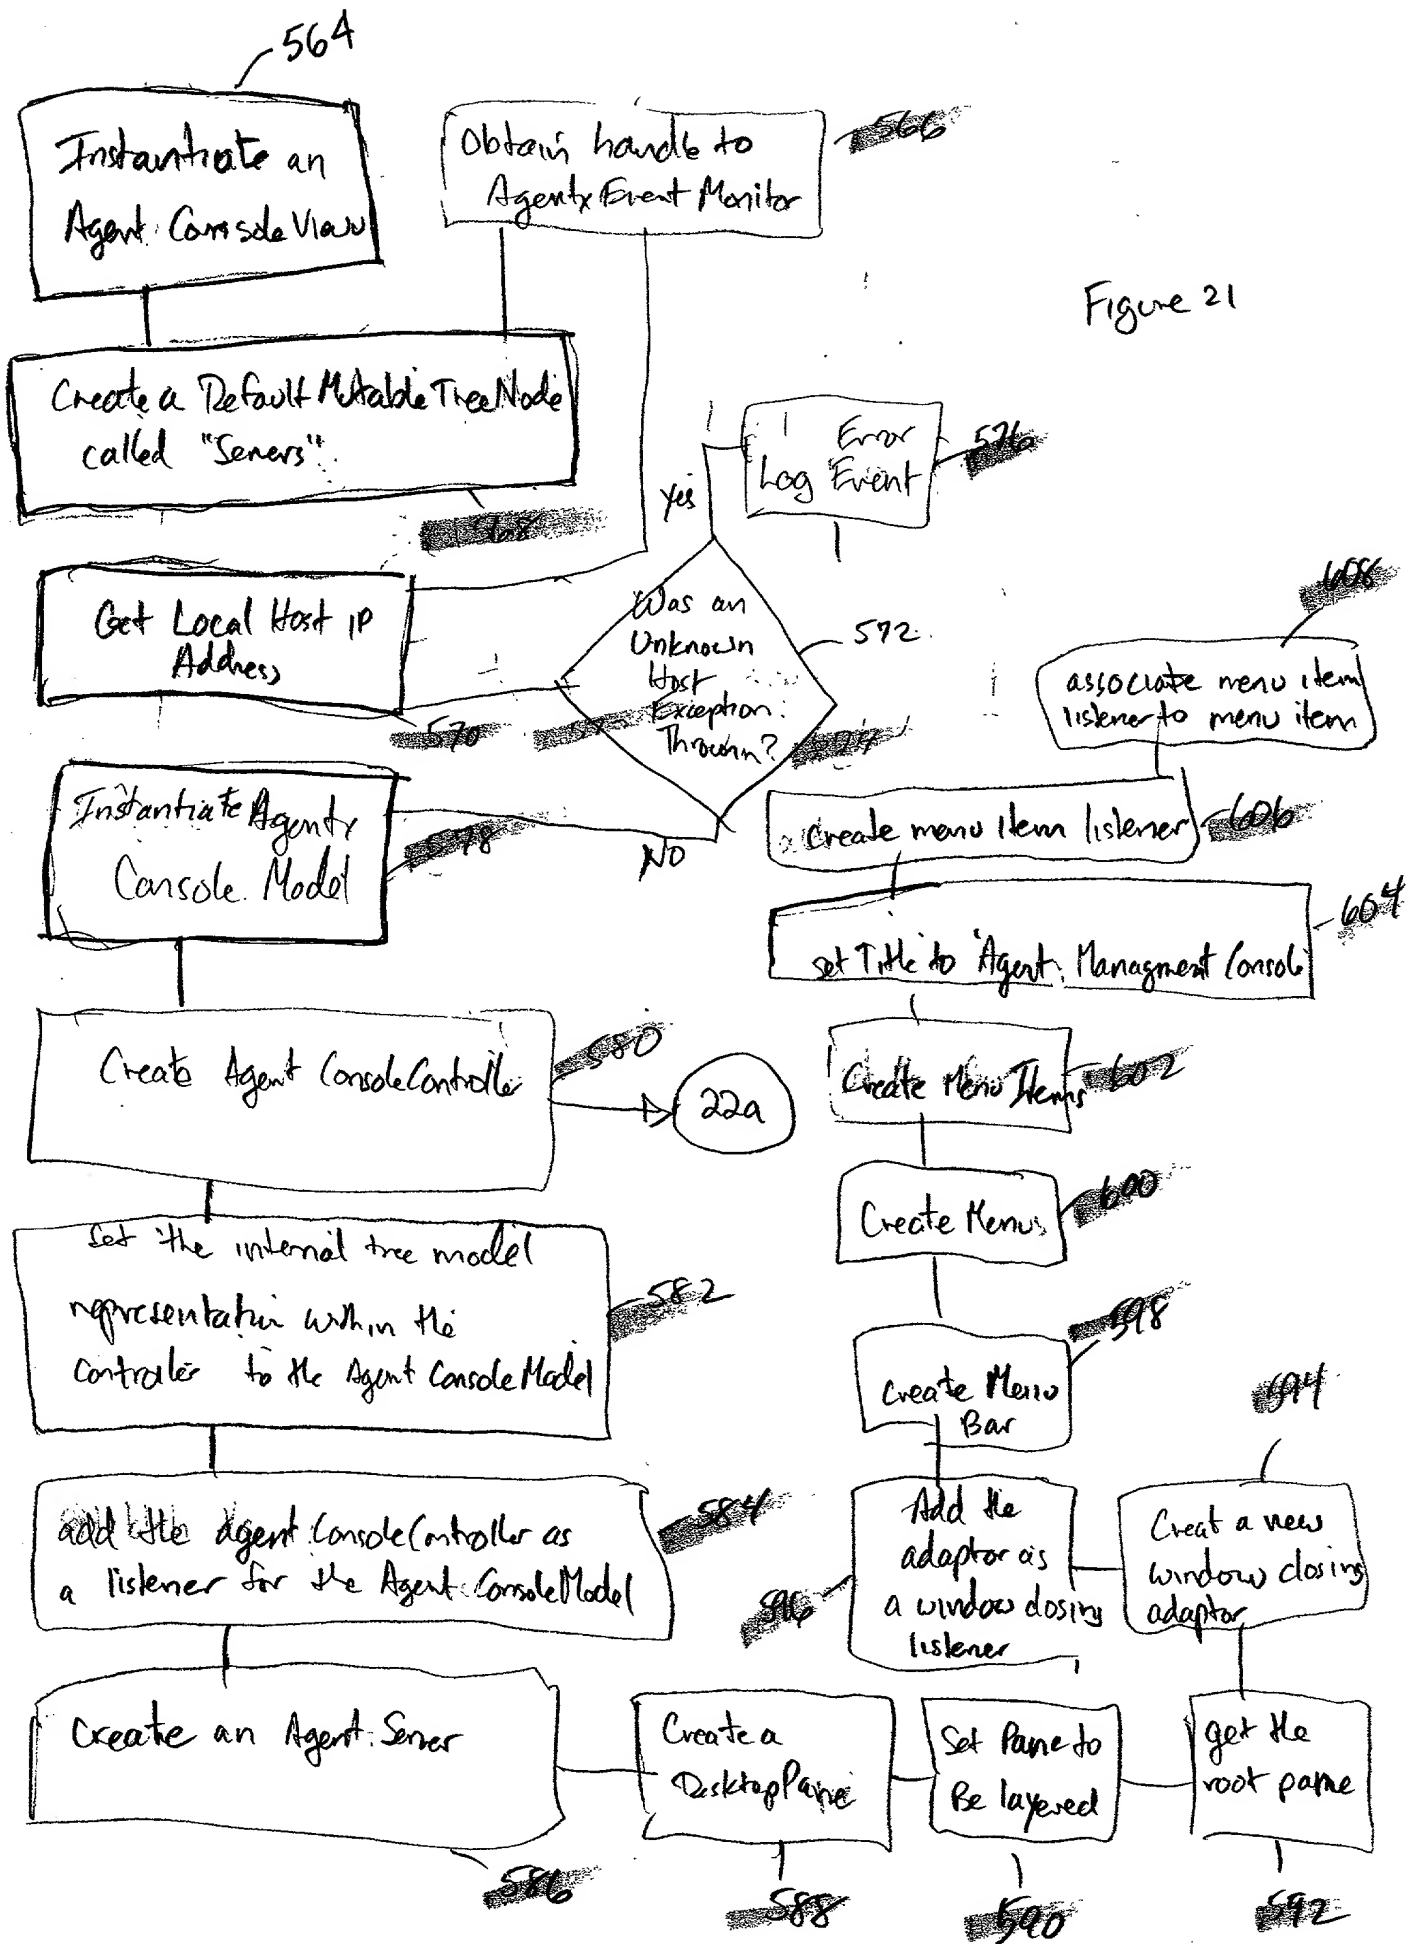 564
Instantiate an
Agent ConsoleView
Obtain handle to
Agentx Event Monitor
566
Figure 21
Create a Default MutableTreeNode
called "Servers"
568
Error
Log Event
576
Yes
Get Local Host IP
Address
570
Was an
Unknown
Host
Exception
Thrown?
572
608
associate menu item
listener to menu item
Instantiate Agentx
Console Model
578
No
create menu item listener
606
set Title to 'Agent Managment Console
604
Create Agent ConsoleController
580
22a
Create Menu Items
602
Create Menus
600
Set the internal tree model
representation within the
Controller to the Agent ConsoleModel
582
Create Menu
Bar
598
594
add the agent ConsoleController as
a listener for the Agent ConsoleModel
584
Add the
adaptor as
a window closing
listener
596
Creat a new
window closing
adaptor
Create an Agent Server
586
Create a
DesktopPane
588
Set Pane to
Be layered
590
get the
root pane
592